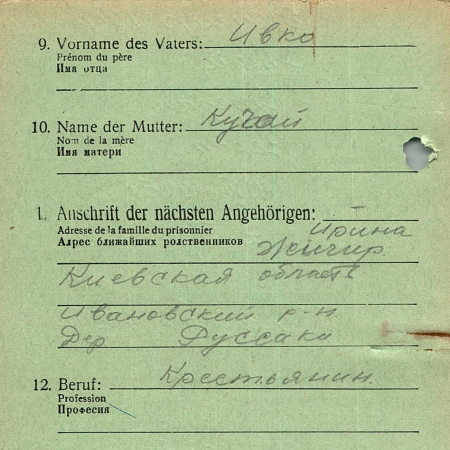 9. Vorname des Vaters: Ивко
Prénom du père
Имя отца
10. Name der Mutter: Кучай
Nom de la mère
Имя матери
1. Anschrift der nächsten Angehörigen:
Adresse de la famille du prisonnier Ирина
Адрес ближайших родственников
Киевская область
Ивановский р-н.
Дер Руссаки
12. Beruf: Крестьянин.
Profession
Професия